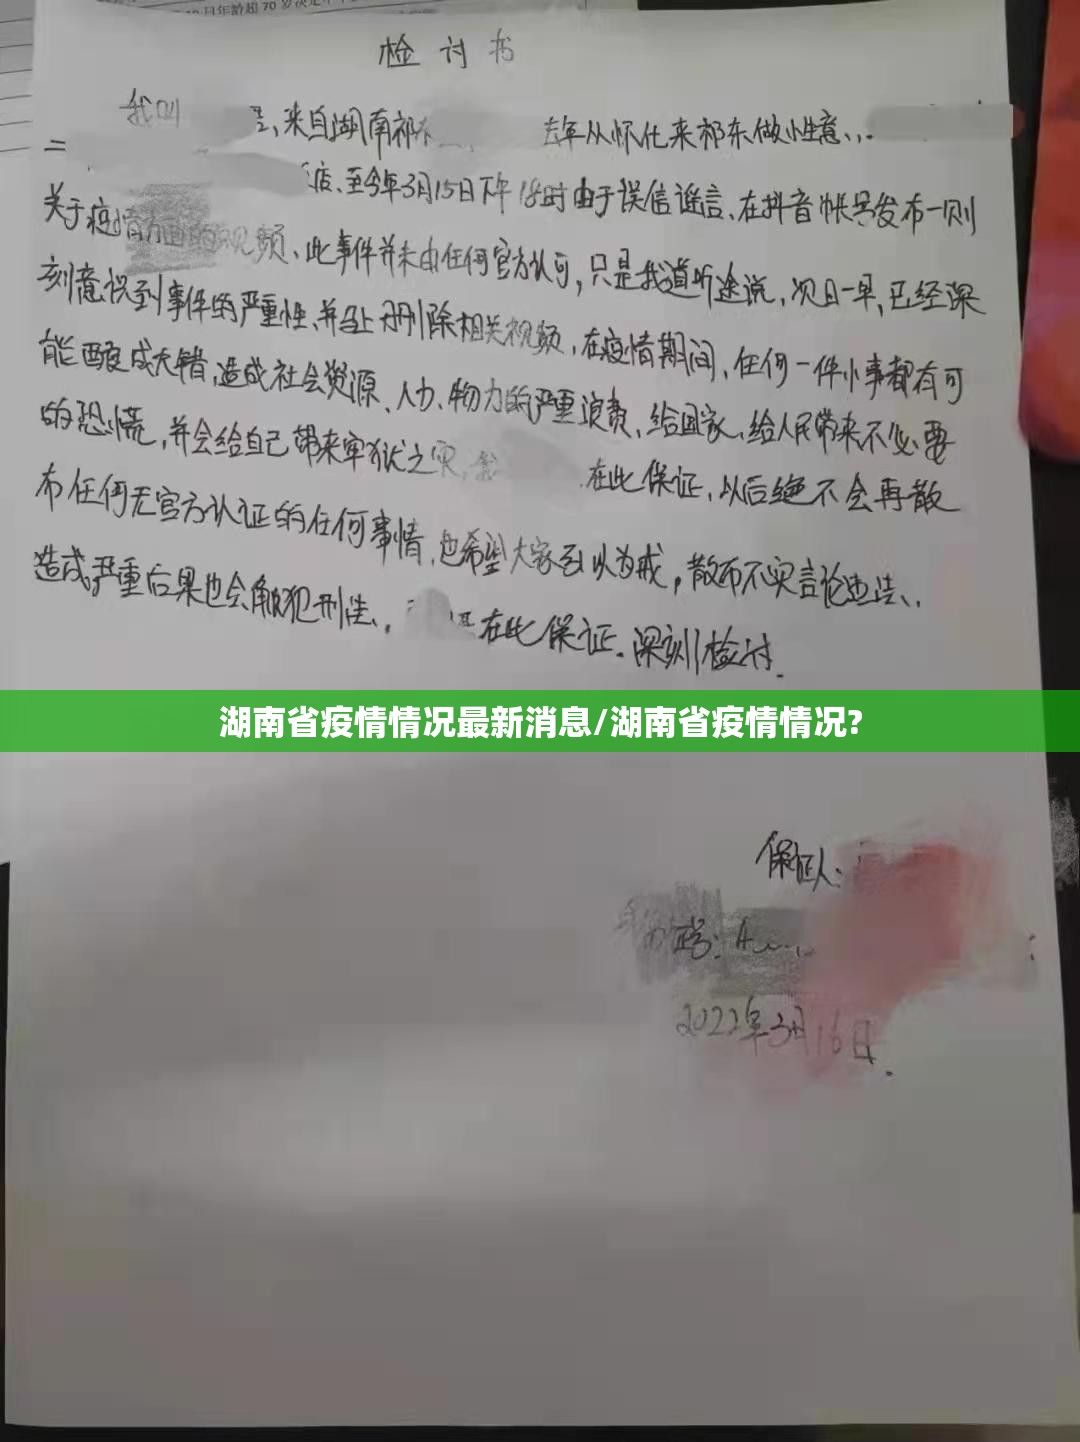 日年龄超70岁决定
检讨书
我叫 来自湖南祁东 去年从怀化来祁东做小生意、
二
店、至今年3月15日下午18时由于误信谣言、在抖音帐号发布一则
关于疫情 视频、此事件并未由任何官方认可，只是我道听途说，次日一早，已经深
刻意识到事件的严重性、并马上删除相关视频，在疫情期间，任何一件小事都有可
能酿成大错，造成社会资源、人力、物力的严重浪费、给国家、给人民带来不必要
的恐慌，并会给自己带来牢狱之灾， 在此保证，以后绝不会再散
布任何无官方认证的任何事情，也希望大家引以为戒，散布不实言论违法、
造成严重后果也会触犯刑法、 在此保证．深刻检讨．
湖南省疫情情况最新消息/湖南省疫情情况?
保证人：
2022年3月16日．